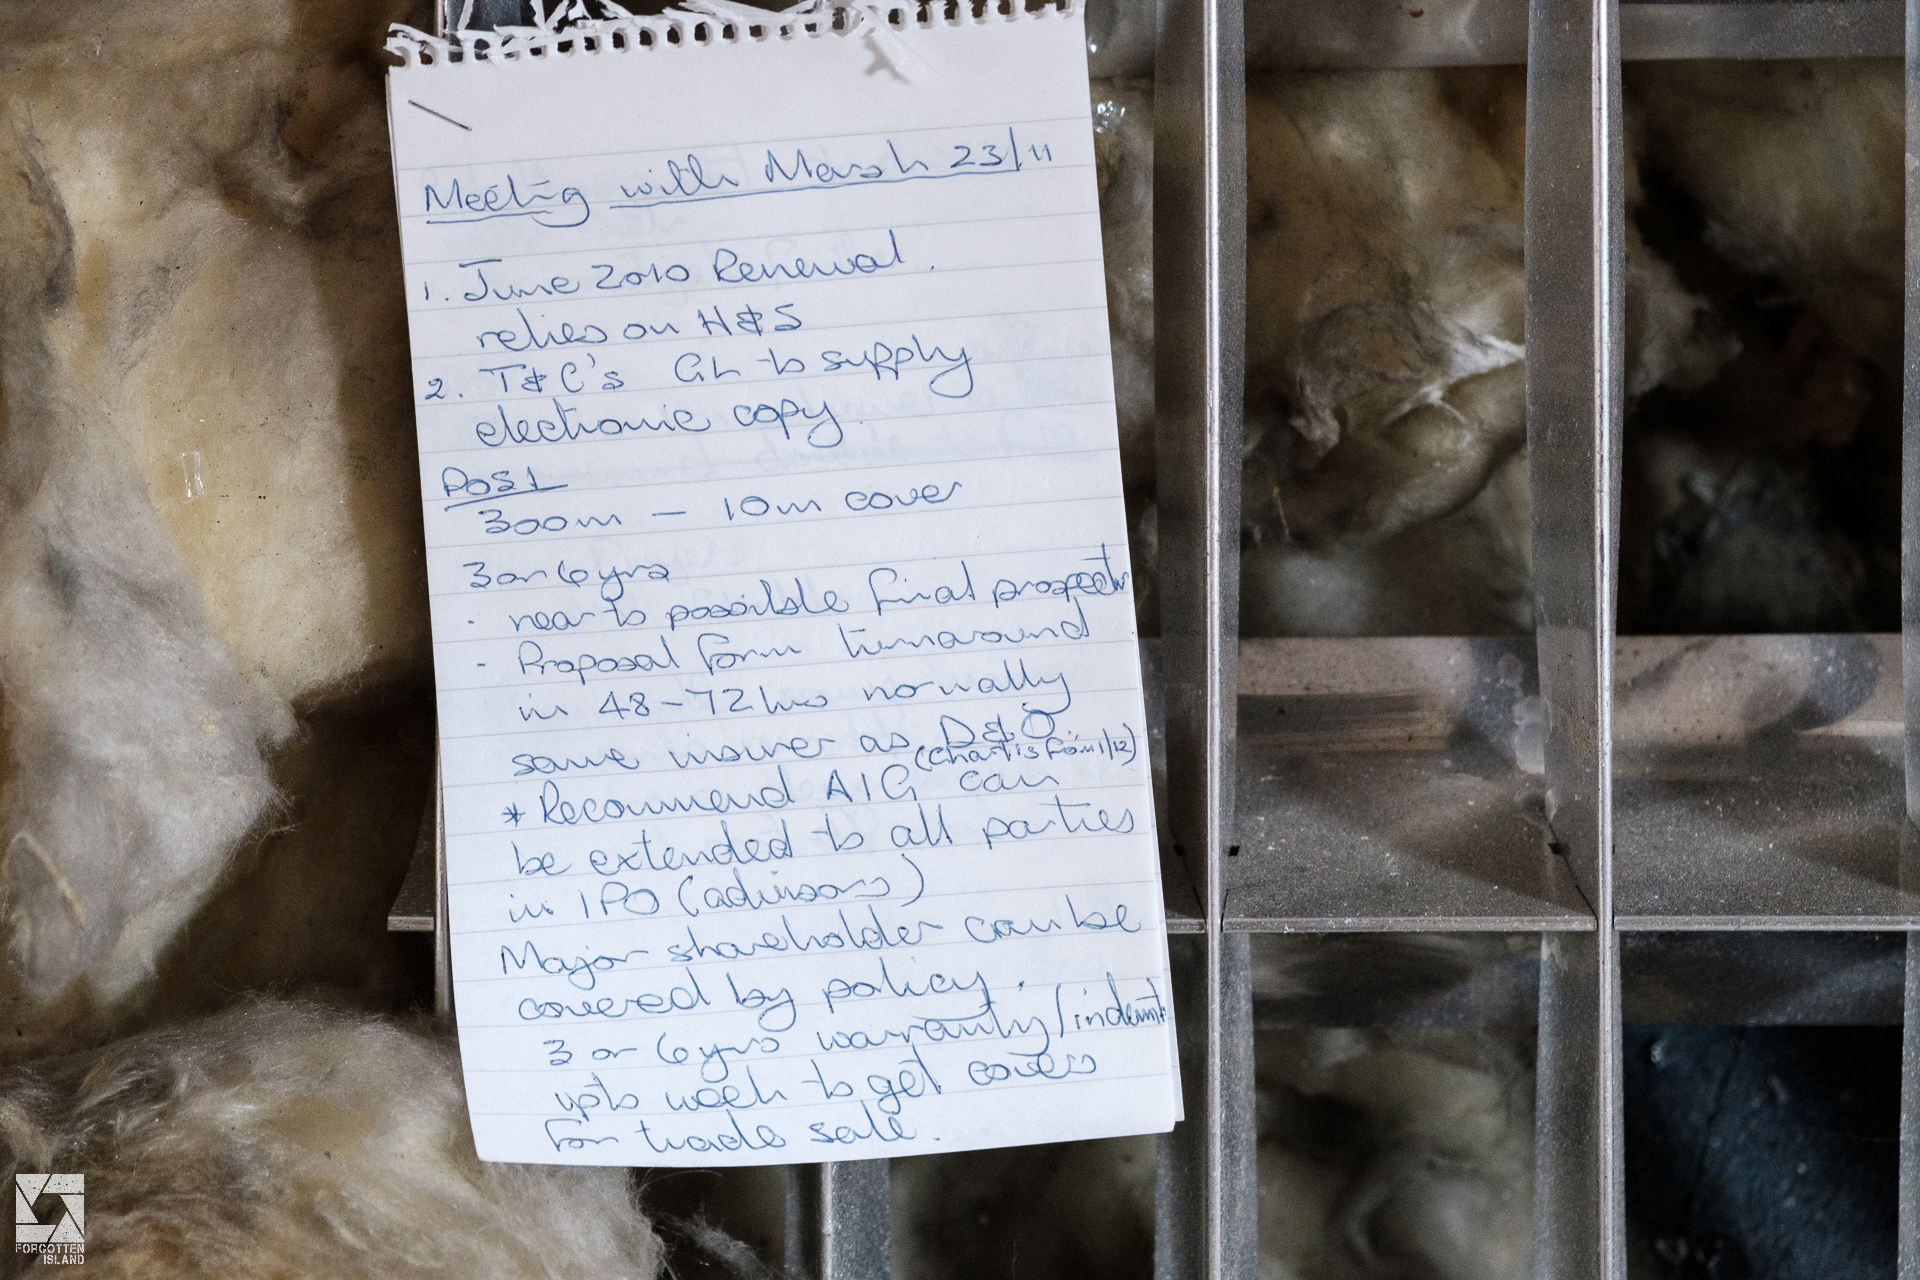 Meeting with Marsh 23/11
1. June 2010 Renewal.
relies on H&S
2. T&C's GL to supply
electronic copy.
POSI
300m – 10m cover
3 or 6 yrs
· near to possible final prospectus
- Proposal form turnaround
in 48-72 hrs normally
same insurer as D&O
(Chartis from 1/12)
* Recommend AIG can
be extended to all parties
in IPO (advisors)
Major shareholder can be
covered by policy.
3 or 6 yrs warranty/indemnity
upto week to get covers
for trade sale.
FORGOTTEN
ISLAND